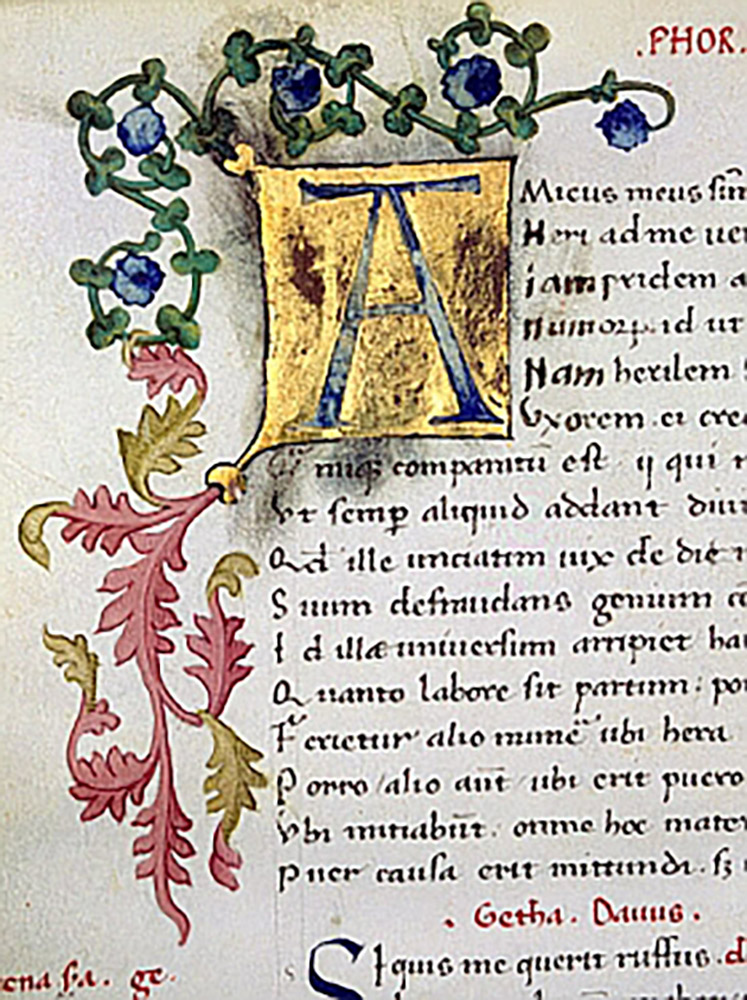 .PHOR.
AMicus meus sūm
Heri ad me uen
iampridem a
numorꝝ. id ut
Nam herilem
Vxorem. ei cred
miqȝ comparatū est ij qui
Vt semꝑ aliquid addant diui
Qd̄ ille unciatim uix de die
Suum defraudans genium
Id illæ uniuersum arripiet hau
Quanto labore sit partum: por
Ferietur alio mune ubi hera
Porro alio aūt ubi erit puero
Vbi initiabūt. omne hoc mater
Puer causa erit mittundi. sȝ
. Getha. Dauus.
SIquis me querit ruffus. d
ge.